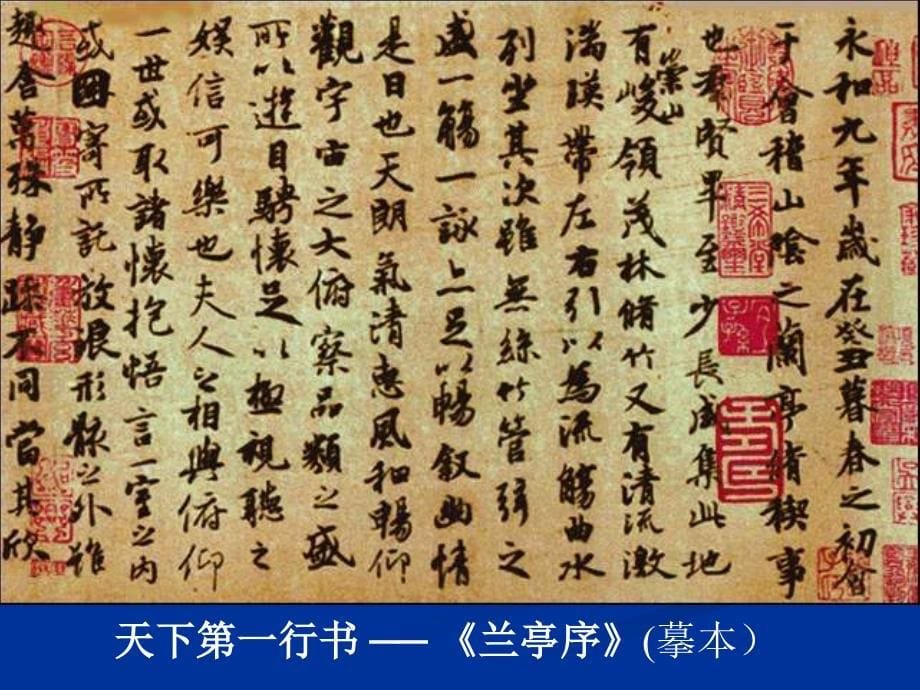 永和九年歲在癸丑暮春之初會
于會稽山陰之蘭亭脩稧事
也羣賢畢至少長咸集此地
崇山
有峻領茂林脩竹又有清流激
湍暎帶左右引以為流觴曲水
列坐其次雖無絲竹管弦之
盛一觴一詠亦足以暢敘幽情
是日也天朗氣清惠風和暢仰
觀宇宙之大俯察品類之盛
所以遊目騁懷足以極視聽之
娛信可樂也夫人之相與俯仰
一世或取諸懷抱悟言一室之內
或因寄所託放浪形骸之外雖
趣舍萬殊靜躁不同當其欣
天下第一行书 —— 《兰亭序》(摹本）